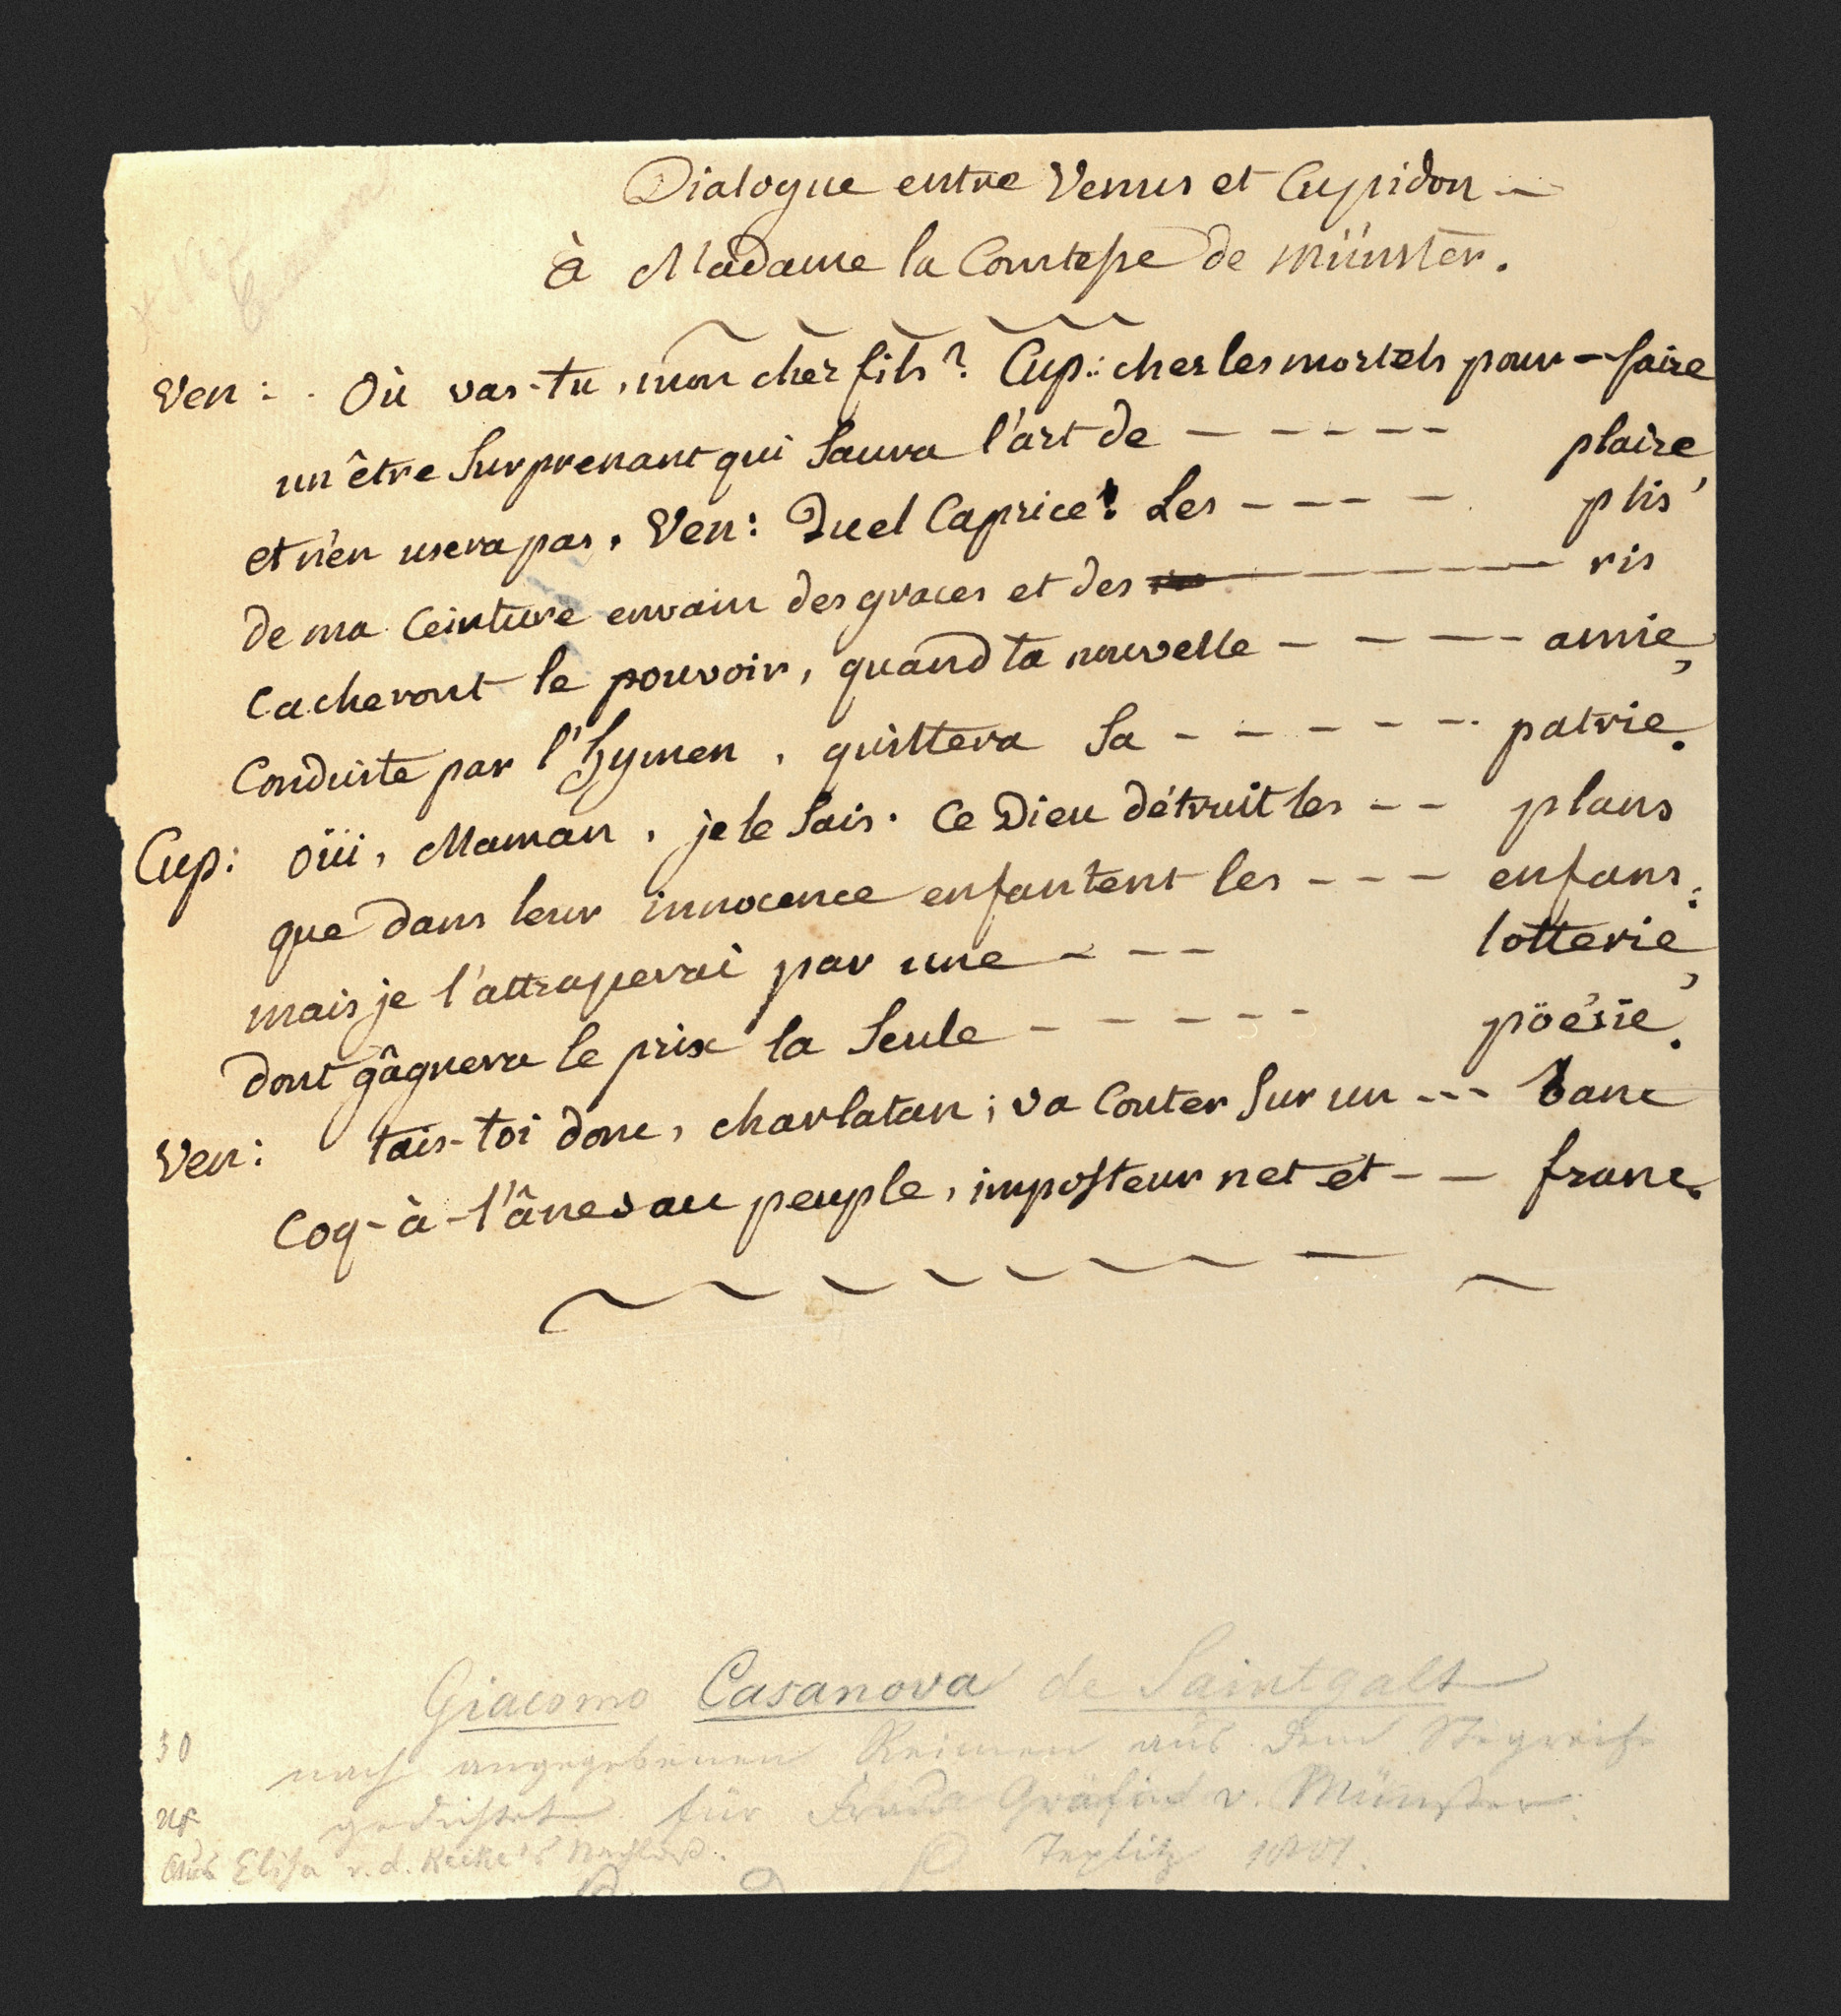 Dialogue entre Venus et Cupidon —
à Madame la Comtesse de Münster.
Ven : . Où vas-tu, mon cher fils ? Cup : chez les mortels pour — faire
un être surprenant qui saura l'art de — — — — — — plaire
et n'en usera pas. Ven : Quel Caprice ! Les — — — — plis
de ma Ceinture envain des graces et des — — — ris
Cacheront le pouvoir, quand ta nouvelle — — — — amie,
Conduite par l'hymen, quittera sa — — — — — — patrie.
Cup : oüi, Maman, je le sais. Ce Dieu détruit les — — plans
que dans leur innocence enfantent les — — — enfans :
mais je l'attraperai par une — — — lotterie,
dont gâgnera le prix la seule — — — — — pöésie.
Ven : tais-toi donc, charlatan ; va conter sur un — — — banc
Coq-à-l'ânes au peuple, imposteur net et — — franc.
Giacomo Casanova de Saintgalt
30
nach angegebenen Reimen aus dem Stegreife
gedichtet für Gräfin v. Münster.
Aus Elisa v. d. Recke's Nachlass. Teplitz 1801.